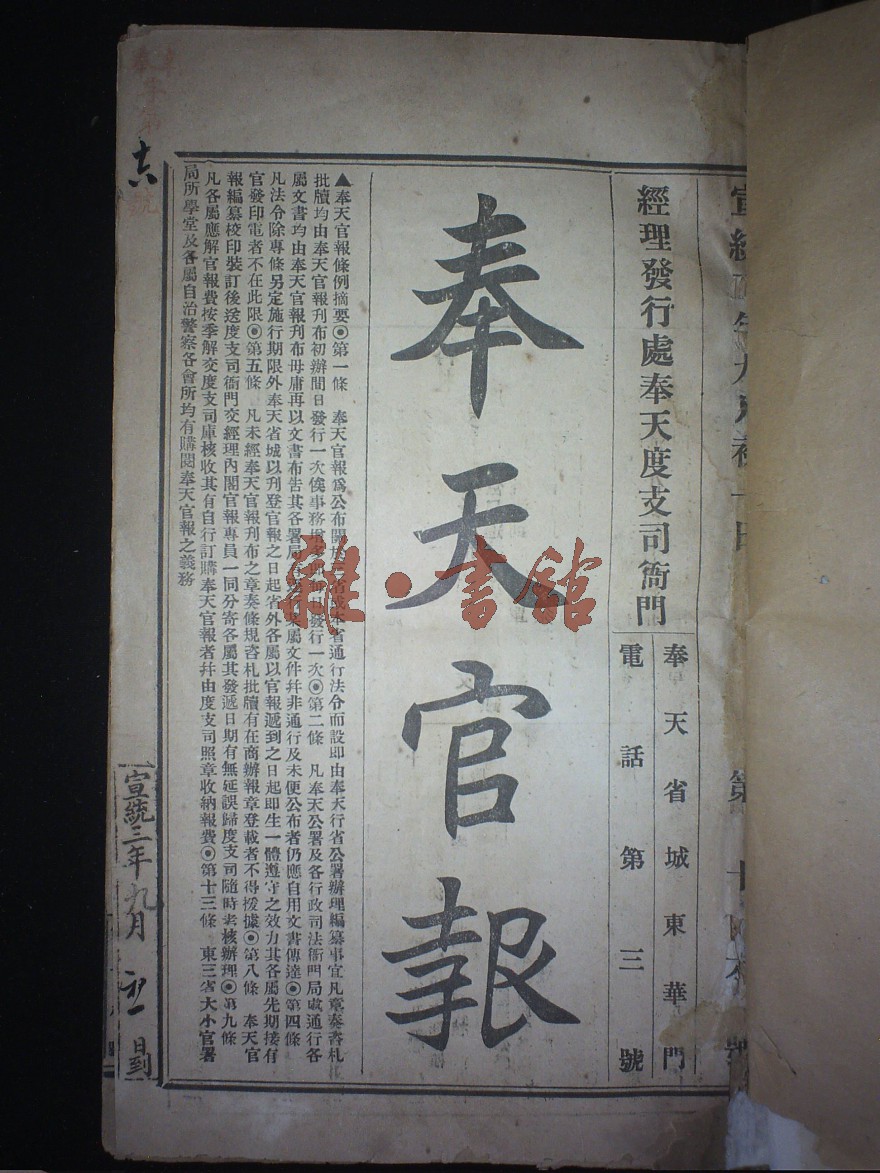 經理發行處奉天度支司衙門
奉天省城東華門
電話第三號
奉天官報
▲奉天官報條例摘要◉第一條　奉天官報爲公布關於三省或本省通行法令而設即由奉天行省公署辦理編纂事宜凡章奏咨札
批牘均由奉天官報刊布初辦間日發行一次俟事務 每日發行一次◉第二條　凡奉天公署及各行政司法衙門局處通行各
屬文書均由奉天官報刊布毋庸再以文書布告其各署局 屬文件幷非通行及未便公布者仍應自用文書傳達◉第四條
凡法令除專條另定施行期限外奉天省城以刊登官報之日起省外各屬以官報遞到之日起即生一體遵守之效力其各屬先期接有
官發印電者不在此限◉第五條　凡未經奉天官報刊布之章奏條規咨札批牘有在商辦報章登載者不得援據◉第八條　奉天官
報編纂校印裝訂後送度支司衙門交經理內閣官報專員一同分寄各屬其發遞日期有無延誤歸度支司隨時考核辦理◉第九條
凡各屬應解官報費按季解交度支司庫核收其有自行訂購奉天官報者幷由度支司照章收納報費◉第十三條　東三省大小官署
局所學堂及各屬自治警察各會所均有購閱奉天官報之義務
雅·書館
宣統三年九月初一日到